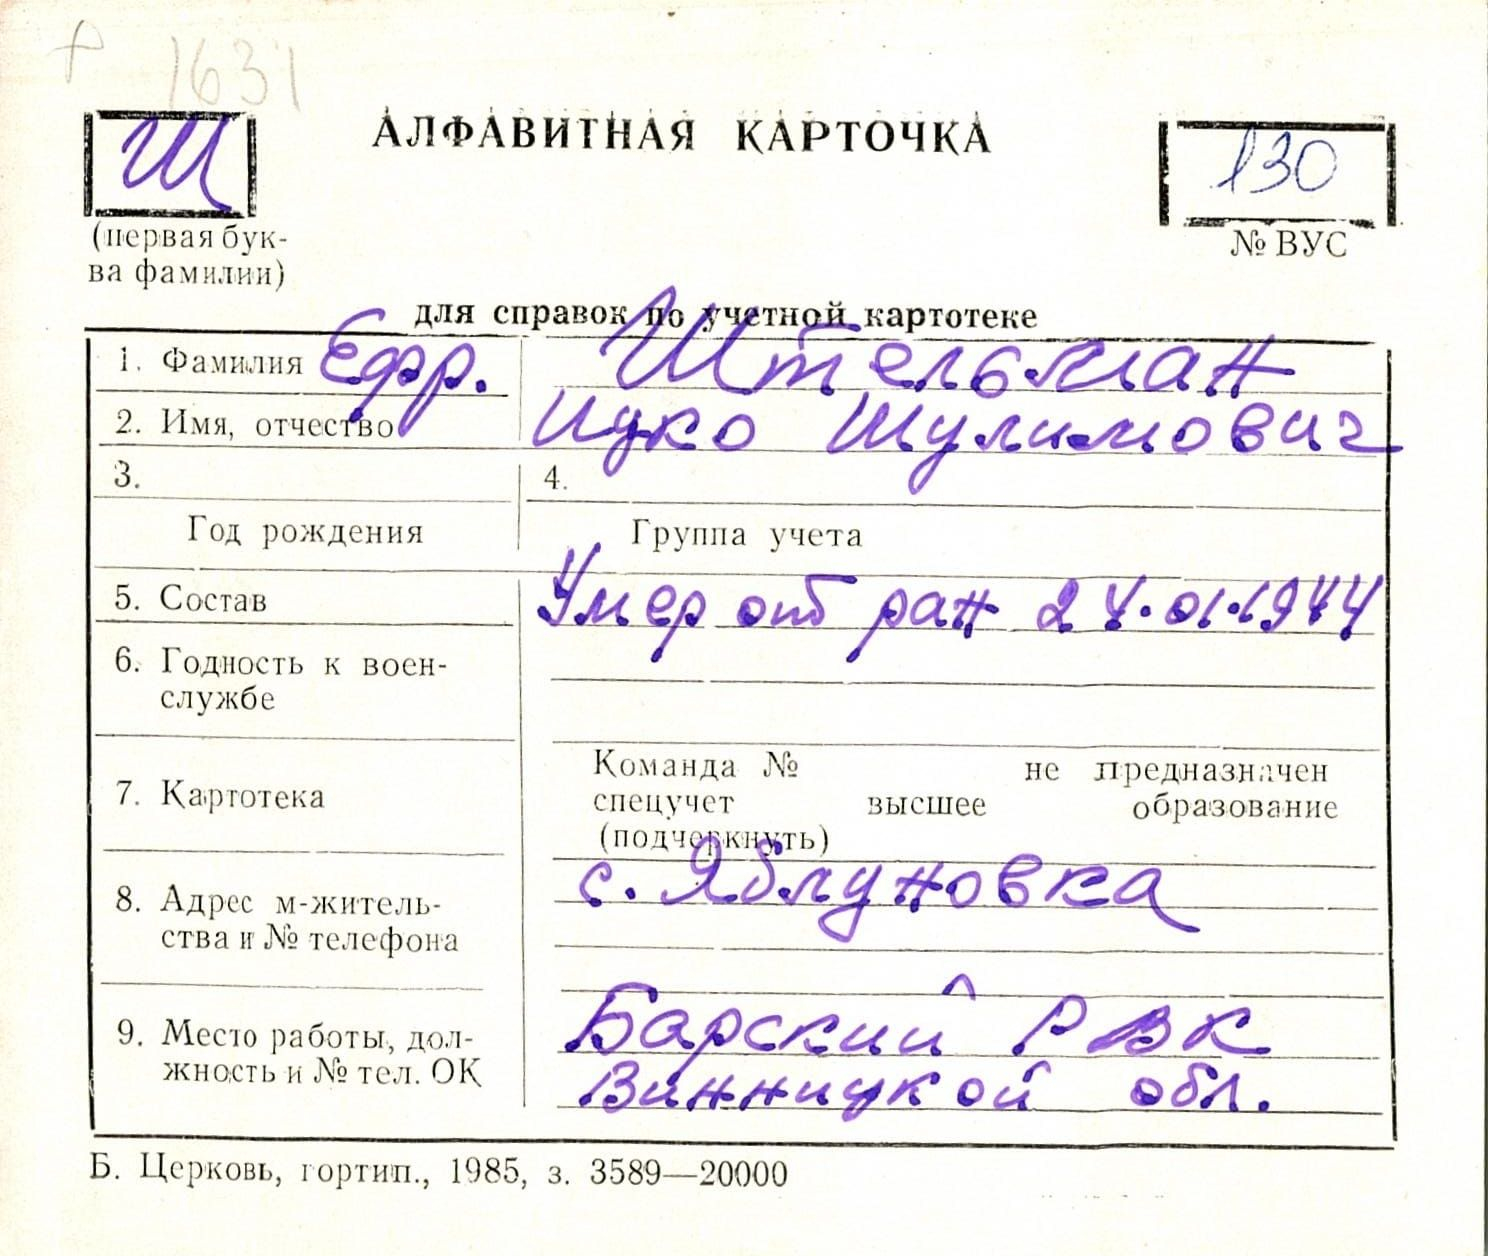 1631
Ш АЛФАВИТНАЯ КАРТОЧКА 130
(первая бук-
ва фамилии)
№ ВУС
для справок по учетной картотеке
1. Фамилия Ефр. Штельман
2. Имя, отчество Ицко Шулимович
3. 4.
Год рождения Группа учета
5. Состав Умер от ран 24.01.1944
6. Годность к воен-
службе
Команда № не предназначен
7. Картотека спецучет высшее образование
(подчеркнуть)
с. Яблуновка
8. Адрес м-житель-
ства и № телефона
Барский РВК
9. Место работы, дол-
жность и № тел. ОК
Винницкой обл.
Б. Церковь, гортип., 1985, з. 3589—20000